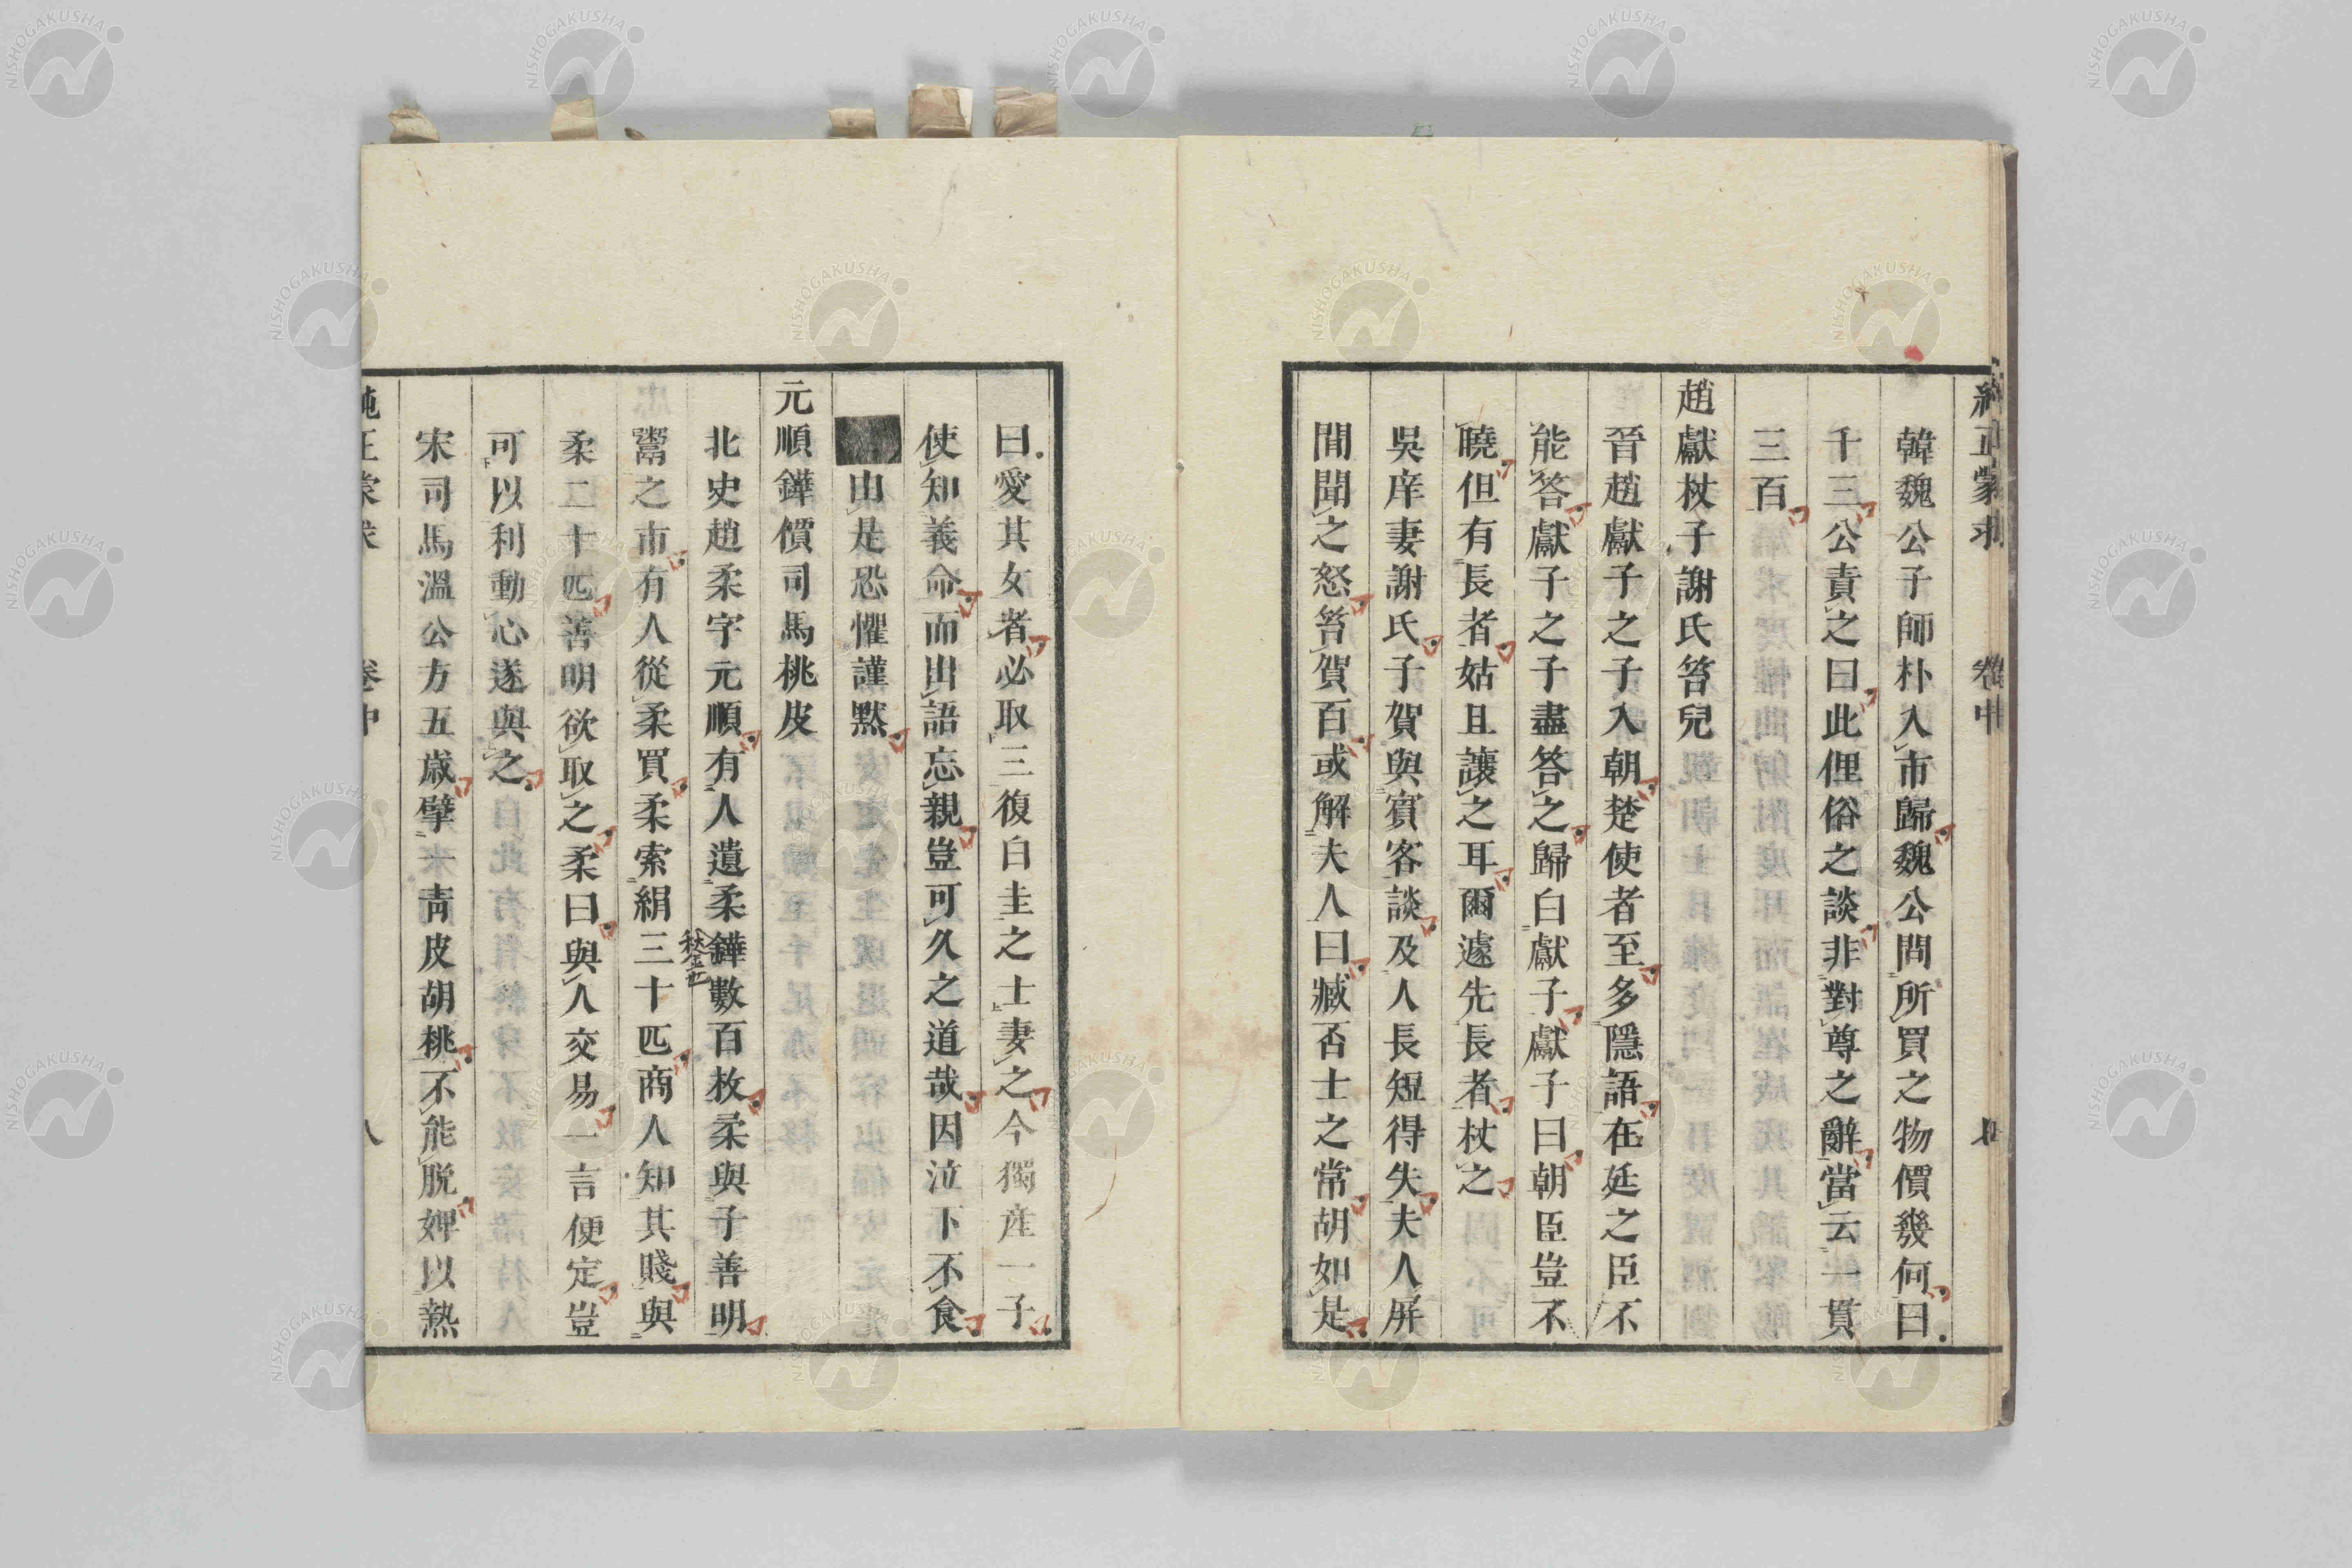 純正蒙求 卷中
韓魏公子師朴入市歸魏公問所買之物價幾何曰
千三公責之曰此俚俗之談非對尊之辭當云一貫
三百
趙獻杖子謝氏笞兒
晉趙獻子之子入朝楚使者至多隱語在廷之臣不
能答獻子之子盡答之歸白獻子獻子曰朝臣豈不
曉但有長者姑且讓之耳爾遽先長者杖之
吳庠妻謝氏子賀與賓客談及人長短得失夫人屏
間聞之怒笞賀百或解夫人曰臧否士之常胡如是
曰愛其女者必取三復白圭之士妻之今獨產一子
使知義命而出語忘親豈可久之道哉因泣下不食
由是恐懼謹默
元順鏵價司馬桃皮
北史趙柔字元順有人遺柔鏵數百枚柔與子善明
鬻之市有人從柔買柔索絹三十匹商人知其賤與
柔二十匹善明欲取之柔曰與人交易一言便定豈
可以利動心遂與之
宋司馬溫公方五歲擘青皮胡桃不能脫婢以熱
純正蒙求 卷中 八
NISHOGAKUSHA